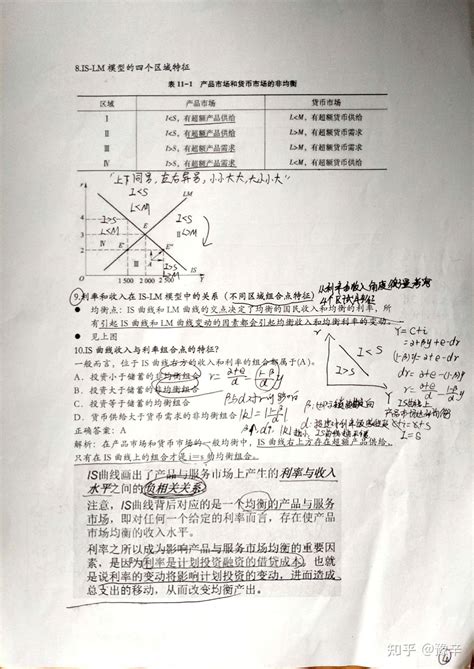 8.IS-LM 模型的四个区域特征
表 11-1 产品市场和货币市场的非均衡
区域 产品市场 货币市场
I I<S，有超额产品供给 L<M，有超额货币供给
II I<S，有超额产品供给 L>M，有超额货币需求
III I>S，有超额产品需求 L>M，有超额货币需求
IV I>S，有超额产品需求 L<M，有超额货币供给
"上下同号，左右异号，小小大大，大小小大"
r
LM
I<S
L<M
4
3
2
I>S
L<M
E
I<S
L>M
E'
E''
I>S
L>M
1 500 2 000 2 500
IS
Y
9.利率和收入在 IS-LM 模型中的关系（不同区域组合点特征）
● 均衡点：IS 曲线和 LM 曲线的交点决定了均衡的国民收入和均衡的利率，所
有引起 IS 曲线和 LM 曲线变动的因素都会引起均衡收入和均衡利率的变动。
● 见上图
r
I<S
I>S
y
Y=C+i
=α+βy+e-dr
(1-β)y=α+e-dr
dr=α+e-(1-β)y
10.IS 曲线收入与利率组合点的特征？
一般而言，位于 IS 曲线右方的收入和利率的组合都属于(A)。
A. 投资小于储蓄的非均衡组合
B. 投资大于储蓄的非均衡组合
C. 投资等于储蓄的均衡组合
D. 货币供给大于货币需求的非均衡组合
正确答案：A
I=S
解析：在产品市场和货币市场的一般均衡中，IS 曲线右上方存在超额产品供给。
只有在 IS 曲线上的组合才是 i=s 的均衡组合。
IS曲线画出了产品与服务市场上产生的利率与收入
水平之间的负相关关系
注意，IS曲线背后对应的是一个均衡的产品与服务
市场，即对任何一个给定的利率而言，存在使产品
市场均衡的收入水平。
利率之所以成为影响产品与服务市场均衡的重要因
素，是因为利率是计划投资融资的借贷成本，也就
是说利率的变动将影响计划投资的变动，进而造成
总支出的移动，从而改变均衡产出。
知乎 @豫辛